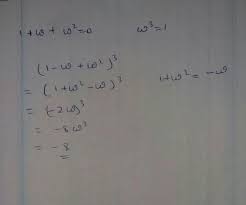 1 + ω + ω² = 0    ω³ = 1
(1 - ω + ω²)³
= (1 + ω² - ω)³    1 + ω² = -ω
= (-2ω)³
= -8ω³
= -8